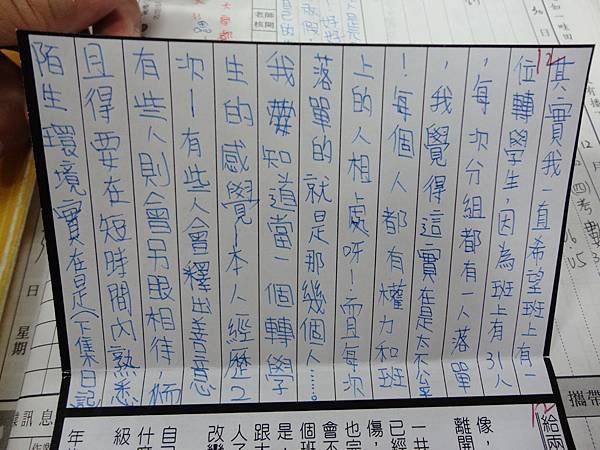 其實我一直希望班上有一
位轉學生,因為班上有31人
,每次分組都有一人落單
,我覺得這實在是太不公
!每個人都有權力和班
上的人相處呀!而且每次
落單的就是那幾個人……。
我知道當一個轉學
生的感覺!本人經歷2
次!有些人會釋出善意
有些人則會另眼相待,而
且得要在短時間內熟悉
陌生環境實在是(下集日記
12
老師核閱
日 星期
訊息
攜帶
給兩
像,
離開
已經
傷,
也完
會不
個班
是,
跟大
改變
級